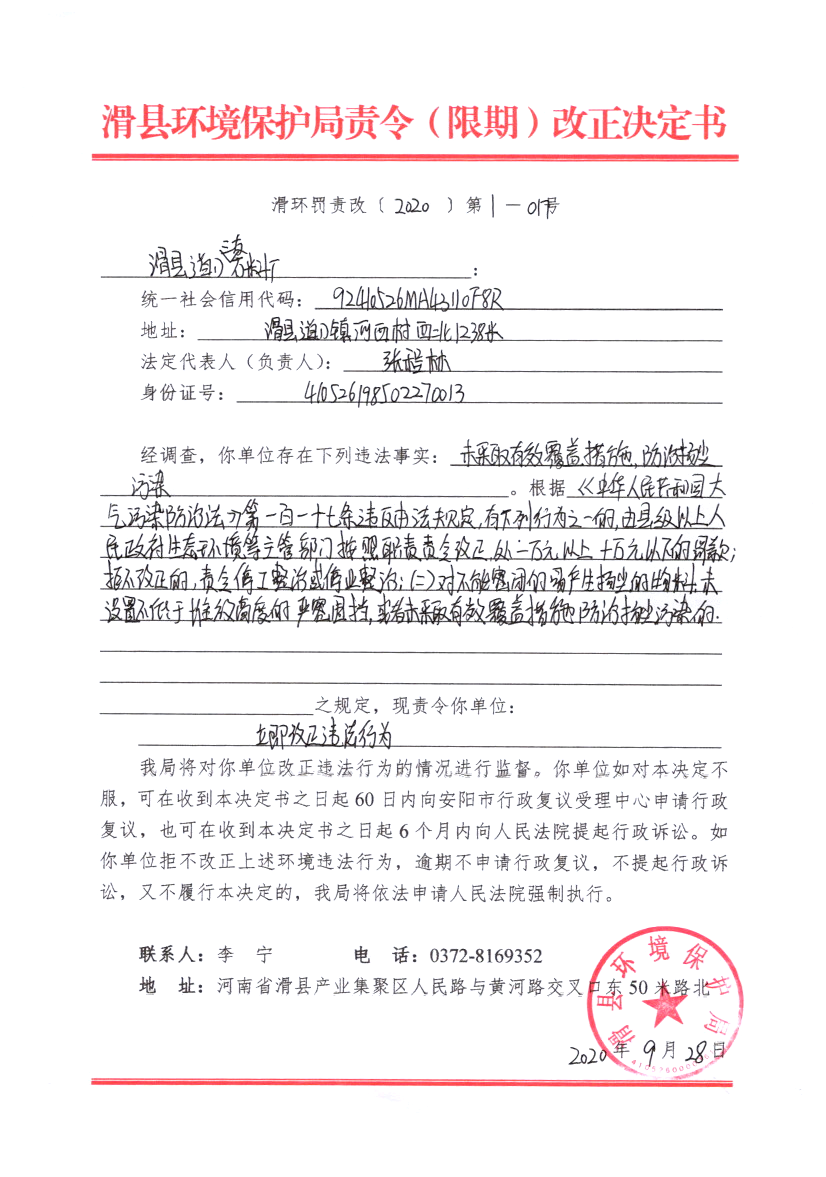 滑县环境保护局责令（限期）改正决定书
滑环罚责改〔 2020 〕第 1 — 017号
滑县道口 料厂：
统一社会信用代码： 92410526MA43110F8R
地址： 滑县道口镇河西村西北1238米
法定代表人（负责人）： 张 林
身份证号： 410526198502270013
经调查，你单位存在下列违法事实： 未采取有效覆盖措施，防治扬尘
污染 。根据《中华人民共和国大
气污染防治法》第一百一十七条违反本法规定，有下列行为之一的，由县级以上人
民政府生态环境等主管部门按照职责责令改正，处一万元以上十万元以下的罚款；
拒不改正的，责令停工整治或停业整治：（二）对不能密闭的易产生扬尘的物料，未
设置不低于堆放高度的严密围挡，或者未采取有效覆盖措施防治扬尘污染的.
之规定，现责令你单位：
立即改正违法行为
我局将对你单位改正违法行为的情况进行监督。你单位如对本决定不
服，可在收到本决定书之日起 60 日内向安阳市行政复议受理中心申请行政
复议，也可在收到本决定书之日起 6 个月内向人民法院提起行政诉讼。如
你单位拒不改正上述环境违法行为，逾期不申请行政复议，不提起行政诉
讼，又不履行本决定的，我局将依法申请人民法院强制执行。
联系人：李 宁 电 话：0372-8169352
地 址：河南省滑县产业集聚区人民路与黄河路交叉口东 50 米路北
滑县环境保护局
2020 年 9 月 28 日